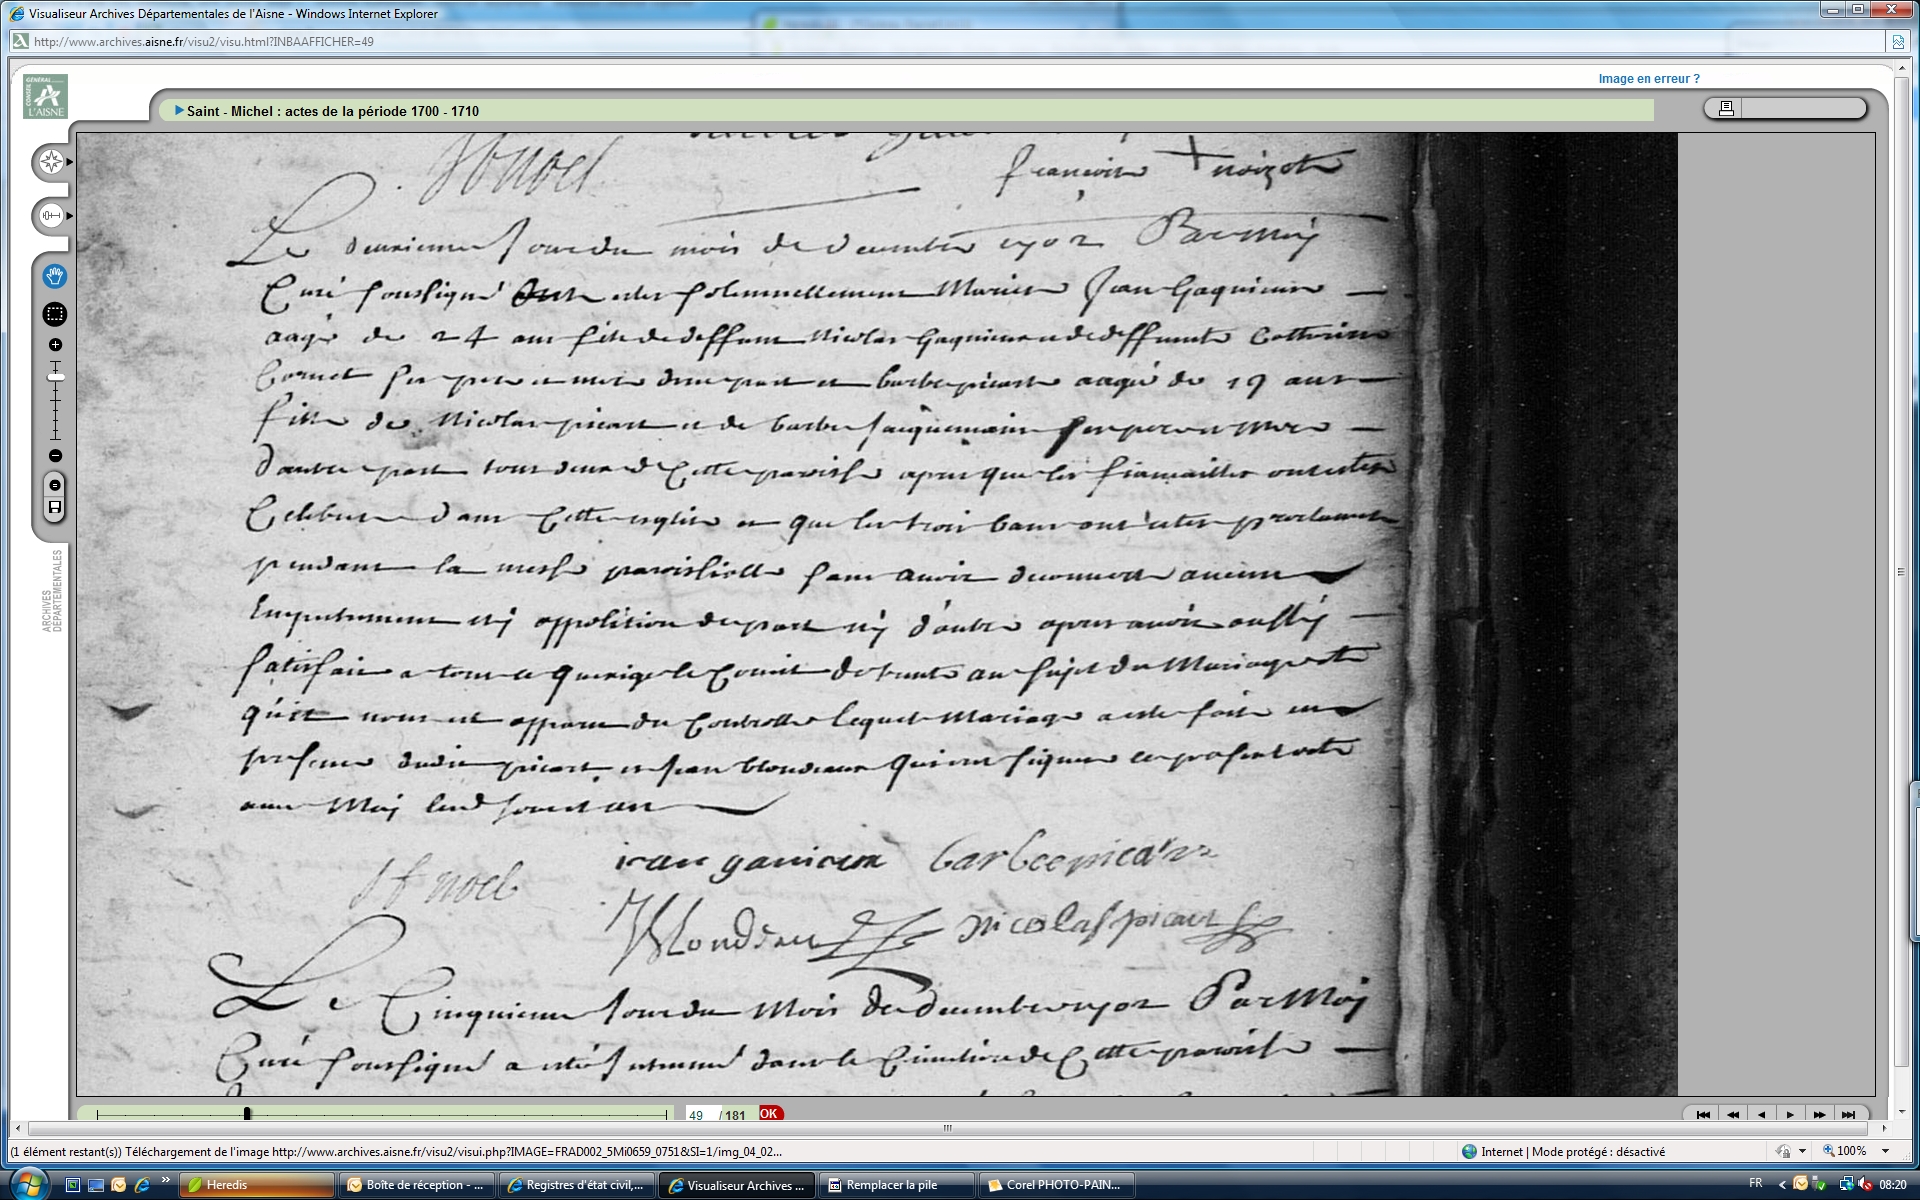 Visualiseur Archives Départementales de l'Aisne - Windows Internet Explorer
http://www.archives.aisne.fr/visu2/visu.html?INBAAFFICHER=49
Image en erreur ?
CONSEIL GÉNÉRAL L'AISNE
Saint - Michel : actes de la période 1700 - 1710
françoise + noizet
Le deuxieme jour du mois de decembre 1702 Par Moy
Curé soussigné ont estes solemnellement Mariez Jean Gaquiere
aagé de 24 ans fils de deffunt Nicolas Gaquiere et de deffuncte Catherine
Cornet ses pere et mere d'une part et barbe picart aagée de 19 ans
fille de Nicolas picart et de barbe Jacquemain ses pere et Mere
d'autre part tous deux de Cette paroisse apres que les fiancailles ont estes
Celebrees dans Cette eglise et que les trois bans ont estes proclamés
pendant la messe paroissialle sans avoir decouvert aucun
Empechement ny opposition de part ny d'autre apres avoir aussy
satisfait a tout ce qu'exige le Concile de trente au sujet du Mariage et
qu'il nous est apparu du Controlle lequel Mariage a este fait en
presence dudit picart et Jean blondeau qui ont signés ce present acte
avec Moy lesd jour et an
jean gauicem barbe picart
St noel
JBlondeau Nicolas picart
Le Cinquieme jour du Mois de decembre 1702 Par Moy
Curé soussigné a esté Inhumé dans le Cimetiere de Cette paroisse
ARCHIVES DÉPARTEMENTALES
49 / 181 OK
(1 élément restant(s)) Téléchargement de l'image http://www.archives.aisne.fr/visu2/visui.php?IMAGE=FRAD002_5Mi0659_0751&SI=1/img_04_02...
Internet | Mode protégé : désactivé
100%
Heredis
Boîte de réception - ...
Registres d'état civil,...
Visualiseur Archives ...
Remplacer la pile
Corel PHOTO-PAIN...
FR
08:20